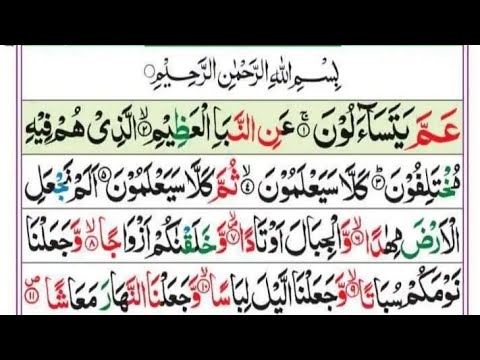 بِسْمِ اللهِ الرَّحْمٰنِ الرَّحِيْمِ
عَمَّ يَتَسَآءَلُوْنَ ۚ﴿۱﴾ عَنِ النَّبَاِ الْعَظِيْمِ ۙ﴿۲﴾ الَّذِیْ هُمْ فِيْهِ
مُخْتَلِفُوْنَ ؕ﴿۳﴾ كَلَّا سَيَعْلَمُوْنَ ۙ﴿۴﴾ ثُمَّ كَلَّا سَيَعْلَمُوْنَ ﴿۵﴾ اَلَمْ نَجْعَلِ
الْاَرْضَ مِهٰدًا ۙ﴿۶﴾ وَّالْجِبَالَ اَوْتَادًا ۪ۙ﴿۷﴾ وَّخَلَقْنٰكُمْ اَزْوَاجًا ۙ﴿۸﴾ وَّجَعَلْنَا
نَوْمَكُمْ سُبَاتًا ۙ﴿۹﴾ وَّجَعَلْنَا الَّيْلَ لِبَاسًا ۙ﴿۱۰﴾ وَّجَعَلْنَا النَّهَارَ مَعَاشًا ۪﴿۱۱﴾